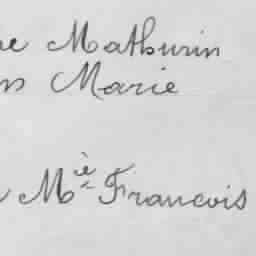 Mathurin
Marie
Mie François